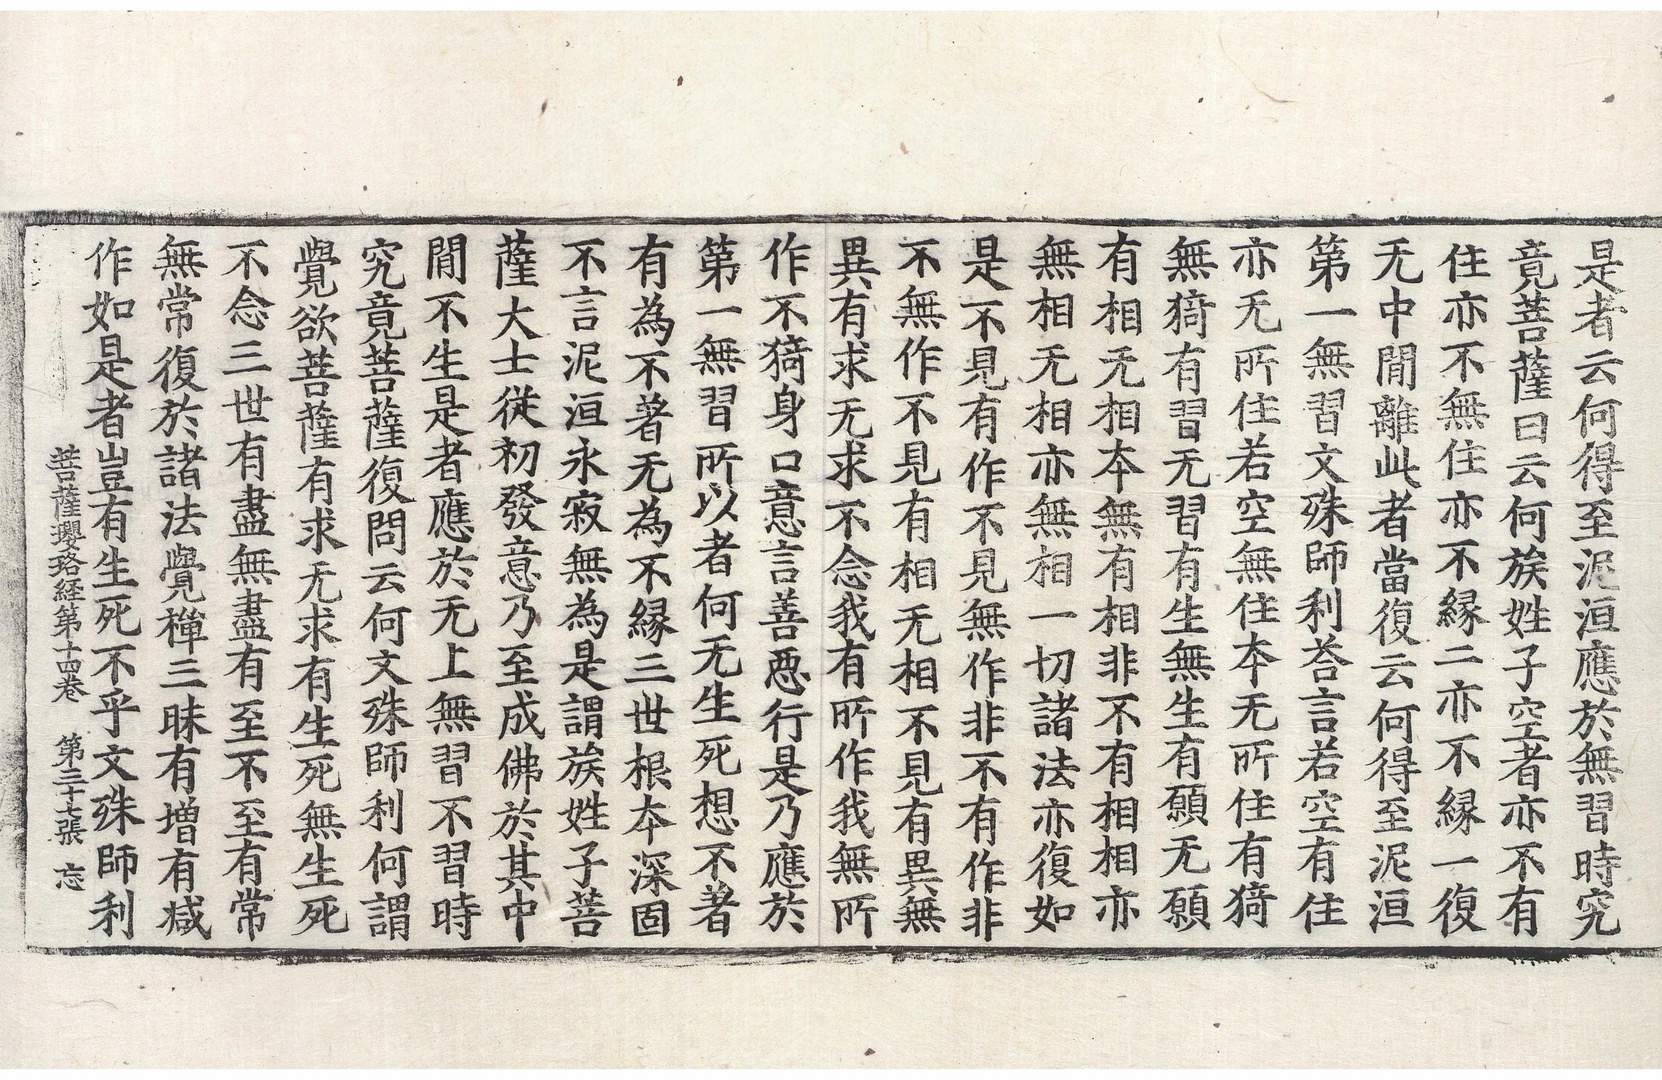 是者云何得至泥洹應於無習時究
竟菩薩曰云何族姓子空者亦不有
住亦不無住亦不緣二亦不緣一復
无中間離此者當復云何得至泥洹
第一無習文殊師利荅言若空有住
亦无所住若空無住本无所住有猗
無猗有習无習有生無生有願无願
有相无相本無有相非不有相相亦
無相无相亦無相一切諸法亦復如
是不見有作不見無作非不有作非
不無作不見有相无相不見有異無
異有求无求不念我有所作我無所
作不猗身口意言善惡行是乃應於
第一無習所以者何无生死想不著
有為不著无為不緣三世根本深固
不言泥洹永寂無為是謂族姓子菩
薩大士從初發意乃至成佛於其中
間不生是者應於无上無習不習時
究竟菩薩復問云何文殊師利何謂
覺欲菩薩有求无求有生死無生死
不念三世有盡無盡有至不至有常
無常復於諸法覺禪三昧有增有減
作如是者豈有生死不乎文殊師利
菩薩瓔珞経第十四卷　第三十七張　忘